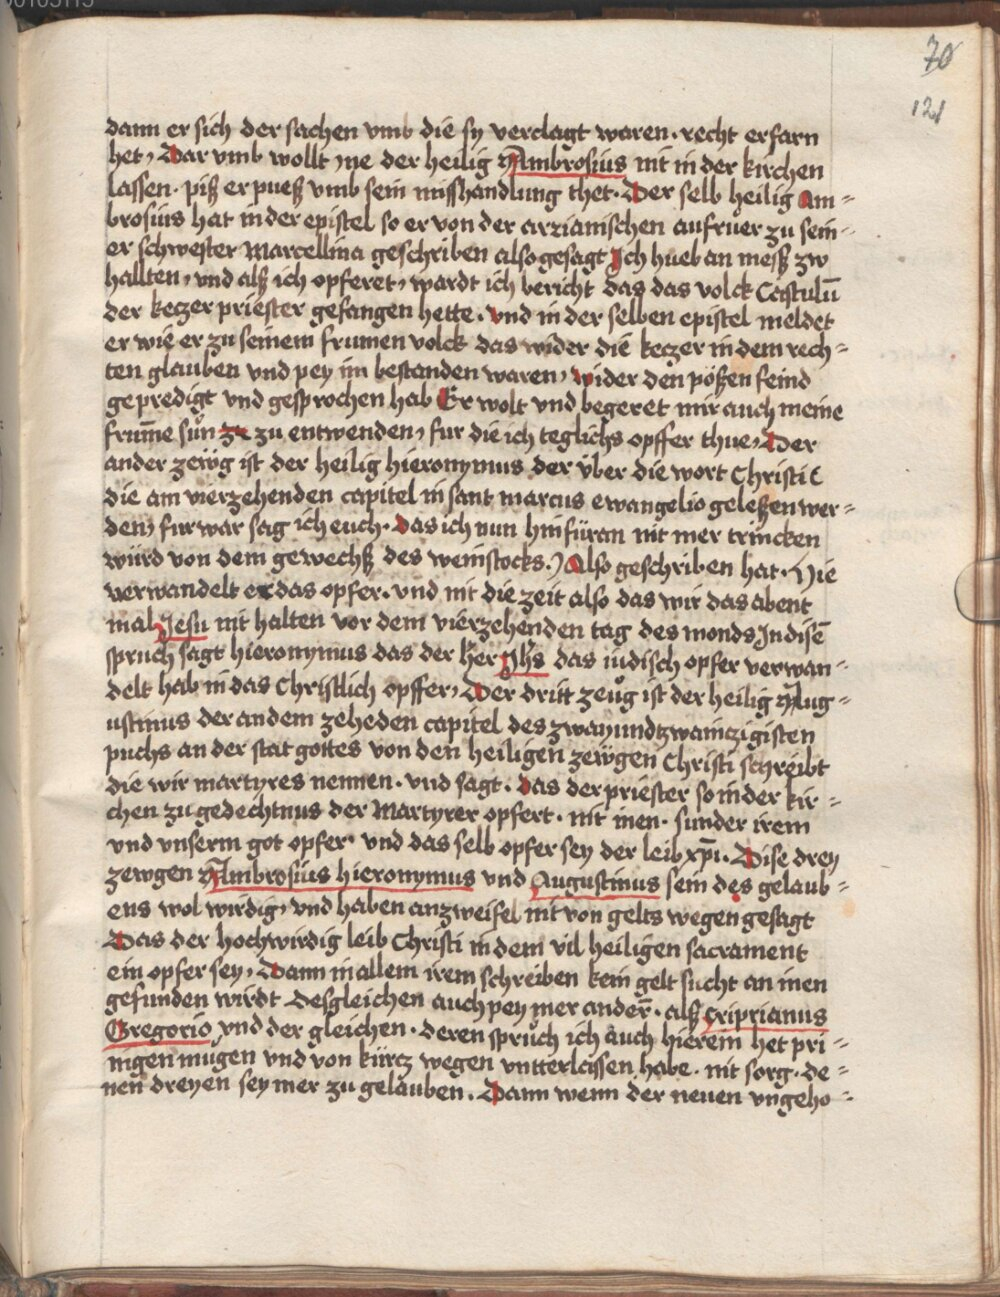 70
121
dann er sich der sachen vmb die sy verclagt waren. recht erfarn
het, Dar vmb wollt jne der heilig Ambrosius nit in der kirchen
lassen. piß er pueß vmb sein misshandlung thet. Der selb heilig Am=
brosius hat in der epistel so er von der arzianischen aufruer zu sein=
er schwester Marcellina geschriben also gesagt Ich hueb an meß zw
hallten, vnd alß ich opferet, wardt ich bericht das das volck Castulū
der keczer priester gefangen hette. vnd in der selben epistel meldet
er wie er zu seinem frumen volck das wider die keczer in dem rech=
ten glauben vnd pey im bestanden waren, wider den pößen feind
gepredigt vnd gesprochen hab Er wolt vnd begeret mir auch meine
frum̄e sůn zu entwenden, fur die ich teglichs opffer thue, Der
ander zewg ist der heilig hieronymus der über die wort Christi (
die am vierzehenden capitel in sant marcus ewangelio geleßen wer=
den) furwar sag ich euch. das ich nun hinfüran nit mer trincken
würd von dem gewechß des weinstocks.) Also geschriben hat. Hie
verwandelt er das opfer. vnd nit die zeit also das wir das abent
mal Jesu nit halten vor dem vierzehenden tag des monds Jn disē
spruch sagt hieronymus das der her Jhs das iudisch opfer verwan=
delt hab in das Christlich opffer, Der dritt zeug ist der heilig Aug=
ustinus der an dem zeheden capitel des zway und tzwainzigisten
puchs an der stat gottes von den heiligen zewgen Christi schreibt
die wir martyres nennen. vnd sagt. das der priester so in der kir=
chen zu gedechtnus der Martyrer opfert. nit inen. sunder irem
vnd vnserm got opfer vnd das selb opfer sey der leib xp̄i. Dise drey
zewgen Ambrosius hieronymus vnd Augustinus sein des gelaub=
ens wol wirdig, vnd haben an zweifel nit von gelts wegen gesagt
Das der hochwirdig leib Christi in dem vil heiligen sacrament
ein opfer sey, Dann in allem irem schreiben kein gelt sucht an inen
gefunden wirdt Desgleichen auch pey mer ander̄. alß Criprianus
Gregorio vnd der gleichen. deren spruch ich auch hierein het pri=
nigen mugen vnd von kürcz wegen vntterlassen habe. nit sorg. de=
nen dreyen sey mer zu gelauben. Dann wenn der neuen vngeho=